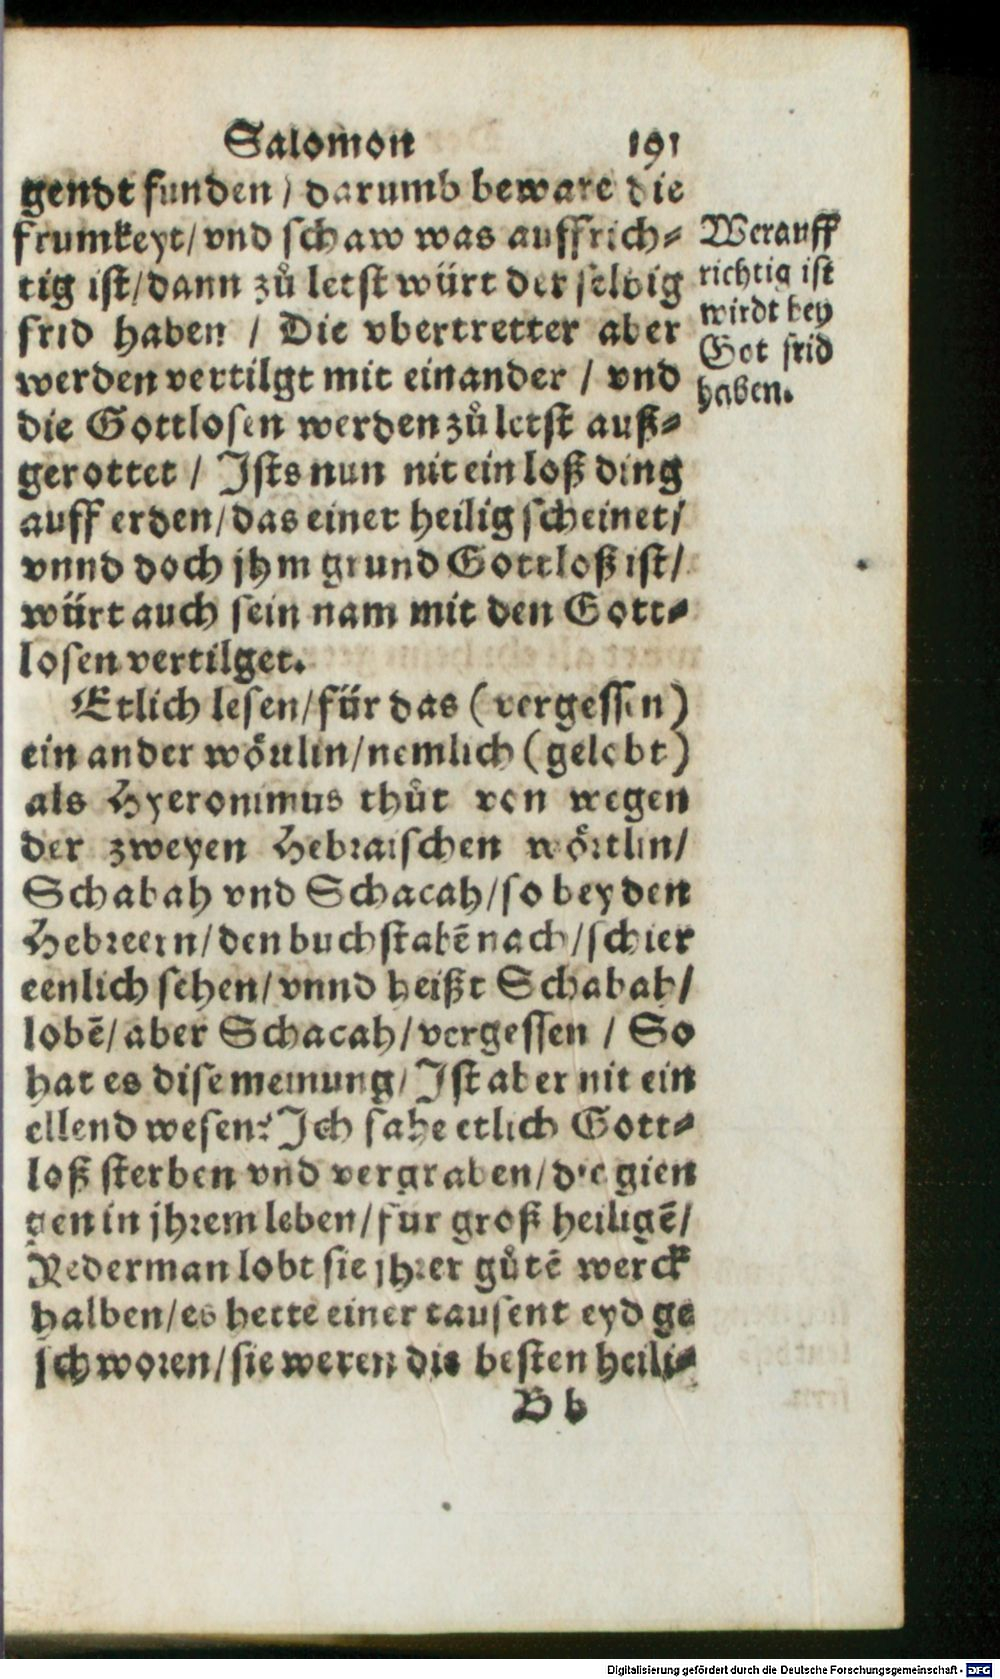 Salomon 191
gendt funden / darumb beware die
frumkeyt / vnd schaw was auffrich⸗
tig ist / dann zů letst würt der selbig
frid haben / Die vbertretter aber
werden vertilgt mit einander / vnd
die Gottlosen werden zů letst auß⸗
gerottet / Ists nun nit ein loß ding
auff erden / das einer heilig scheinet /
vnnd doch jhm grund Gottloß ist /
würt auch sein nam mit den Gott⸗
losen vertilget.
Etlich lesen / für das (vergessen)
ein ander wörtlin / nemlich (gelobt)
als Hyeronimus thůt von wegen
der zweyen Hebraischen wörtlin /
Schabah vnd Schacah / so bey den
Hebreern / den buchstabē nach / schier
eenlich sehen / vnnd heißt Schabah /
lobē / aber Schacah / vergessen / So
hat es dise meinung / Ist aber nit ein
ellend wesen? Ich sahe etlich Gott⸗
loß sterben vnd vergraben / die gien
gen in jhrem leben / für groß heiligē /
Yederman lobt sie jhrer gůtē werck
halben / es hette einer tausent eyd ge
schworen / sie weren die besten heili⸗
B b
Wer auff
richtig ist
wirdt bey
Got frid
haben.
Digitalisierung gefördert durch die Deutsche Forschungsgemeinschaft - DFG